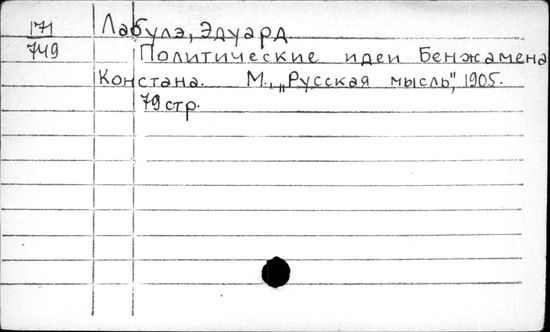 171
749
Лабулэ, Эдуард.
Политические идеи Бенжамена
Констана. М., „Русская мысль", 1905.
79 стр.